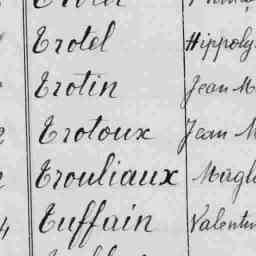 Trotel Hippoly
Trotin Jean M
Trotoux Jean M
Trouliaux Magl
Tuffain Valentin